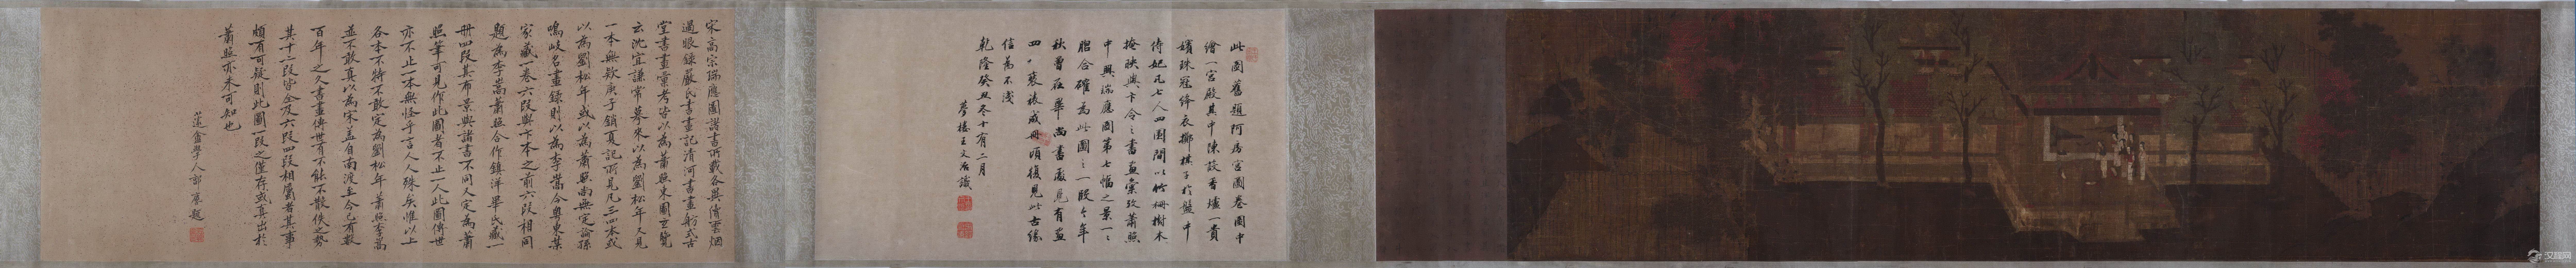 此圖舊題阿房宮圖卷圖中
繪一宮殿其中陳設香爐一貴
嬪珠冠絳衣擲棋子於盤中
侍妃凡七人四圍間以竹柵樹木
掩映與卞令之書畫彙攷蕭照
中興瑞應圖第七幅之景一一
脗合確為此圖之一段今年
秋曾在畢尚書處見有畫
四冊裝裱成冊頃復見此古緣
信為不淺
乾隆癸丑冬十有二月
夢樓王文治識
宋高宗瑞應圖諸書所載各異倩雲烟
過眼錄嚴氏書畫記清河書畫舫式古
堂書畫彙考皆以為蕭照東圖玄覽
云沈宜謙常摹來以為劉松年又見
一本無欵庚子銷夏記所見凡三四本或
以為劉松年或以為蕭照尚無定論孫
鳴岐名畫錄則以為李嵩今粵東葉
家藏一卷六段與卞本之前六段相同
題為李嵩蕭照合作鎮洋畢氏藏一
冊四段其布景與諸書不同又定為蕭
照筆可見作此圖者不止一人此圖傳世
亦不止一本無怪乎言人人殊矣惟以上
各本不特不敢定為劉松年蕭照李嵩
並不敢真以為宋蓋自南渡至今已有數
百年之久書畫傳世有不能不散佚之勢
其十二段皆全及六段四段相屬者其事
頗有可疑則此圖一段之僅存或真出於
蕭照亦未可知也
蘧盦學人郭 題